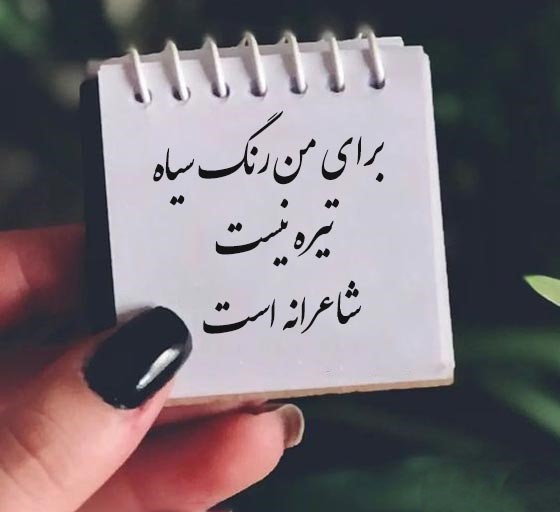 برای من رنگ سیاه
تیره نیست
شاعرانه است